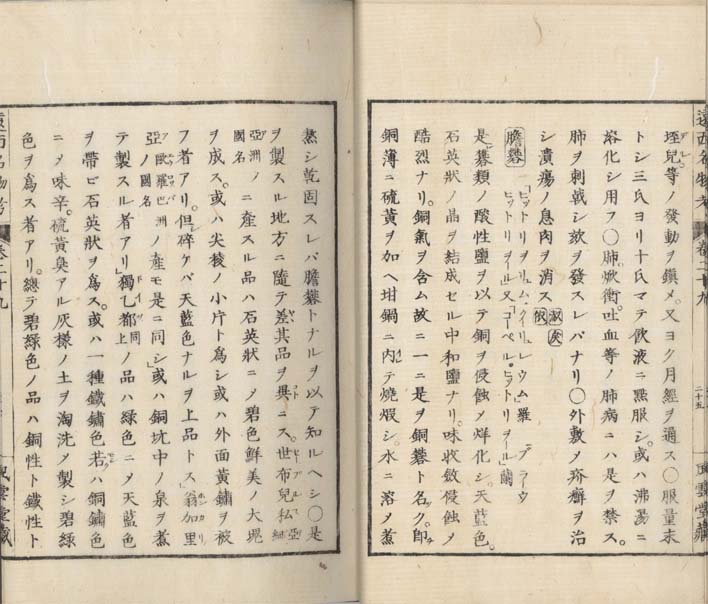 遠西名物考 巻二十九 二十五 風雲堂藏
垤兒等ノ發動ヲ鎮メ。又ヨク月經ヲ通ス○服量末
トシ三氏ヨリ十氏マテ飲液ニ點服シ。或ハ沸湯ニ
溶化シ用フ○肺㶼衝。吐血等ノ肺病ニハ是ヲ禁ス。
肺ヲ刺戟シ欬ヲ發スレバナリ○外敷メ疥癬ヲ治
シ潰瘍ノ息肉ヲ消ス
膽礬 「ヒットリヲリュム・クイリレウム羅 「ブラーウ
ヒットリヲール」又「コーペル・ヒットリヲール」蘭
是礬類ノ酸性鹽ヲ以テ銅ヲ侵蝕メ烊化シ。天藍色。
石英狀ノ晶ヲ結成セル中和鹽ナリ。味收斂侵蝕メ
酷烈ナリ。銅氣ヲ含ム故ニ一ニ是ヲ銅礬ト名ク。即
銅薄ニ硫黄ヲ加ヘ坩鍋ニ内テ燒煆シ。水ニ溶メ煮
蒸シ乾固スレバ膽礬トナルヲ以テ知ルヘシ○是
ヲ製スル地方ニ隨テ差其品ヲ異ニス。世布兒私
亞洲ノ國名ニ産スル品ハ石英狀ニメ碧色鮮美ノ大塊
ヲ成ス。或ハ尖稜ノ小片ト爲シ或ハ外面黄鏽ヲ被
フ者アリ。但シ碎ケバ天藍色ナルヲ上品トス」翁加里
亞歐羅巴洲ノ國名ノ産モ是ニ同シ」或ハ銅坑中ノ泉ヲ煮
テ製スル者アリ」獨乙都同上ノ品ハ綠色ニメ天藍色
ヲ帶ビ石英狀ヲ爲ス。或ハ一種鐵鏽色若ハ銅鏽色
ニメ味辛。硫黄臭アル灰樣ノ土ヲ淘洗メ製シ碧綠
色ヲ爲ス者アリ。總テ碧綠色ノ品ハ銅性ト鐵性ト
遠西名物考 巻二十九 風雲堂藏